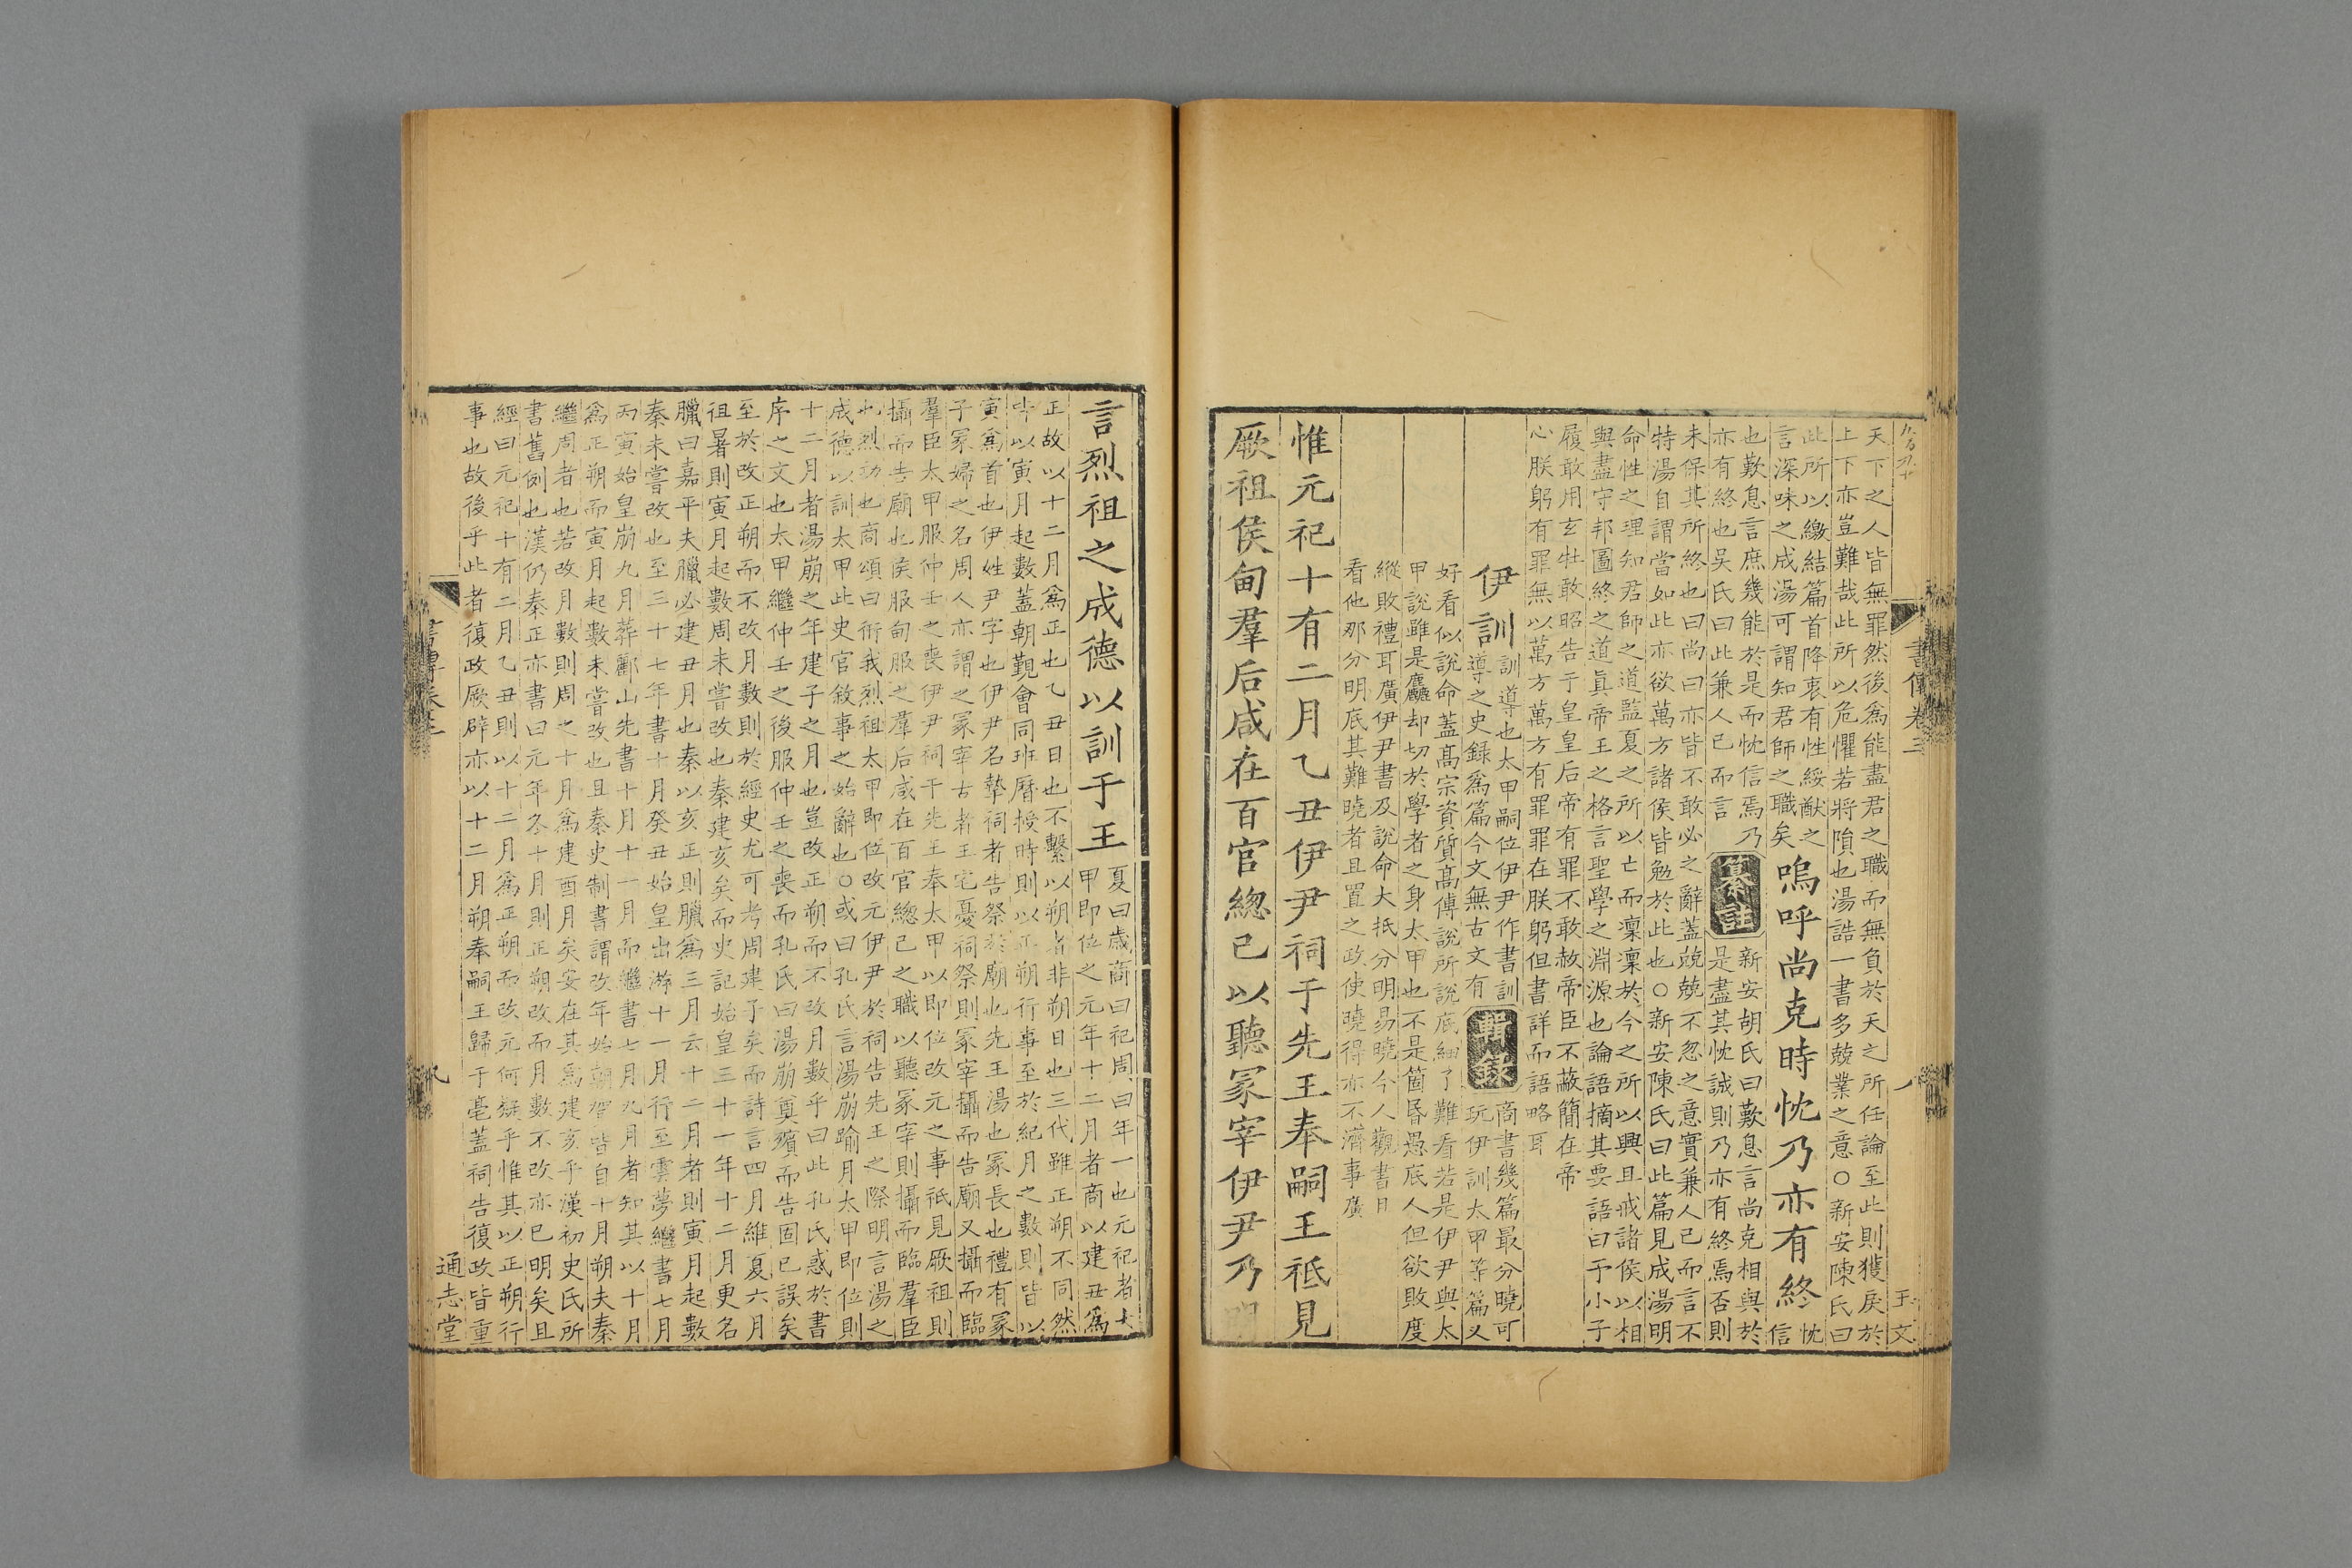 天下之人皆無罪然後爲能盡君之職而無負於天之所任論至此則獲戾於
上下亦豈難哉此所以危懼若將隕也湯誥一書多兢業之意○新安陳氏曰
此所以繳結篇首降衷有性綏猷之
言深味之成湯可謂知君師之職矣
嗚呼尚克時忱乃亦有終
忱
信
也歎息言庶幾能於是而忱信焉乃
亦有終也吳氏曰此兼人已而言
纂註
新安胡氏曰歎息言尚克相與於
是盡其忱誠則乃亦有終焉否則
未保其所終也曰尚曰亦皆不敢必之辭蓋兢兢不忽之意實兼人已而言不
特湯自謂當如此亦欲萬方諸侯皆勉於此也○新安陳氏曰此篇見成湯明
命性之理知君師之道監夏之所以亡而凜凜於今之所以興且戒諸侯以相
與盡守邦圖終之道眞帝王之格言聖學之淵源也論語摘其要語曰予小子
履敢用玄牡敢昭告于皇皇后帝有罪不敢赦帝臣不蔽簡在帝
心朕躬有罪無以萬方萬方有罪罪在朕躬但書詳而語略耳
伊訓
訓導也太甲嗣位伊尹作書訓
導之史録爲篇今文無古文有
輯錄
商書幾篇最分曉可
玩伊訓太甲等篇又
好看似說命蓋高宗資質高傅說所說底細了難看若是伊尹與太
甲說雖是麤却切於學者之身太甲也不是箇昏愚底人但欲敗度
縱敗禮耳廣伊尹書及說命大抵分明易曉今人觀書且
看他那分明底其難曉者且置之政使曉得亦不濟事廣
惟元祀十有二月乙丑伊尹祠于先王奉嗣王祗見
厥祖侯甸羣后咸在百官總己以聽冢宰伊尹乃明
書傳卷三
八
玉文
言烈祖之成德以訓于王
夏曰歲商曰祀周曰年一也元祀者太
甲即位之元年十二月者商以建丑爲
正故以十二月爲正也乙丑日也不繫以朔者非朔日也三代雖正朔不同然
皆以寅月起數蓋朝覲會同班曆授時則以正朔行事至於紀月之數則皆以
寅爲首也伊姓尹字也伊尹名摯祠者告祭於廟也先王湯也冢長也禮有冢
子冢婦之名周人亦謂之冢宰古者王宅憂祠祭則冢宰攝而告廟又攝而臨
羣臣太甲服仲壬之喪伊尹祠于先王奉太甲以即位改元之事祗見厥祖則
攝而告廟也侯服甸服之羣后咸在百官總己之職以聽冢宰則攝而臨羣臣
也烈功也商頌曰衎我烈祖太甲即位改元伊尹於祠告先王之際明言湯之
成德以訓太甲此史官敘事之始辭也○或曰孔氏言湯崩踰月太甲即位則
十二月者湯崩之年建子之月也豈改正朔而不改月數乎曰此孔氏惑於書
序之文也太甲繼仲壬之後服仲壬之喪而孔氏曰湯崩奠殯而告固已誤矣
至於改正朔而不改月數則於經史尤可考周建子矣而詩言四月維夏六月
徂暑則寅月起數周未嘗改也秦建亥矣而史記始皇三十一年十二月更名
臘曰嘉平夫臘必建丑月也秦以亥正則臘爲三月云十二月者則寅月起數
秦未嘗改也至三十七年書十月癸丑始皇出游十一月行至雲夢繼書七月
丙寅始皇崩九月葬酈山先書十月十一月而繼書七月九月者知其以十月
爲正朔而寅月起數未嘗改也且秦史制書謂改年始朝賀皆自十月朔夫秦
繼周者也若改月數則周之十月爲建酉月矣安在其爲建亥乎漢初史氏所
書舊例也漢仍秦正亦書曰元年冬十月則正朔改而月數不改亦已明矣且
經曰元祀十有二月乙丑則以十二月爲正朔而改元何疑乎惟其以正朔行
事也故後乎此者復政厥辟亦以十二月朔奉嗣王歸于亳蓋祠告復政皆重
通志堂